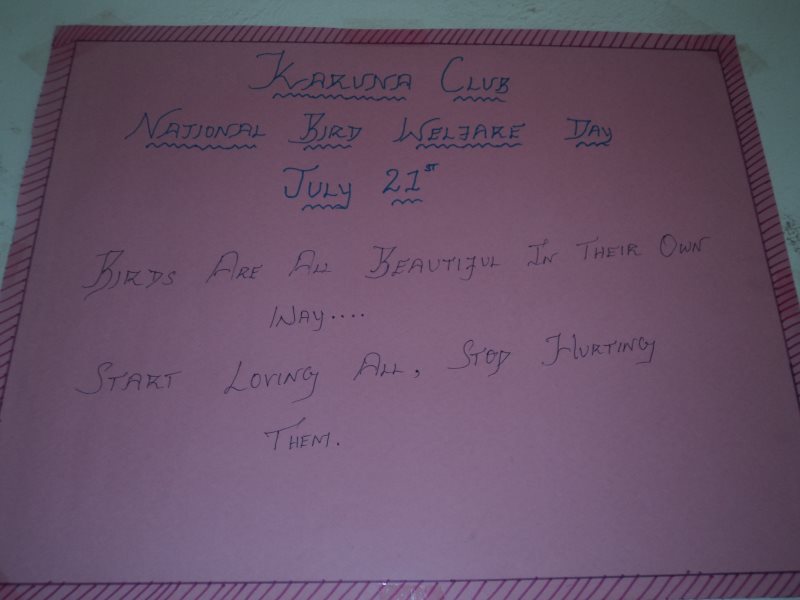 KARUNA CLUB
NATIONAL BIRD WELFARE DAY
JULY 21ST
BIRDS ARE ALL BEAUTIFUL IN THEIR OWN
WAY....
START LOVING ALL, STOP HURTING
THEM.